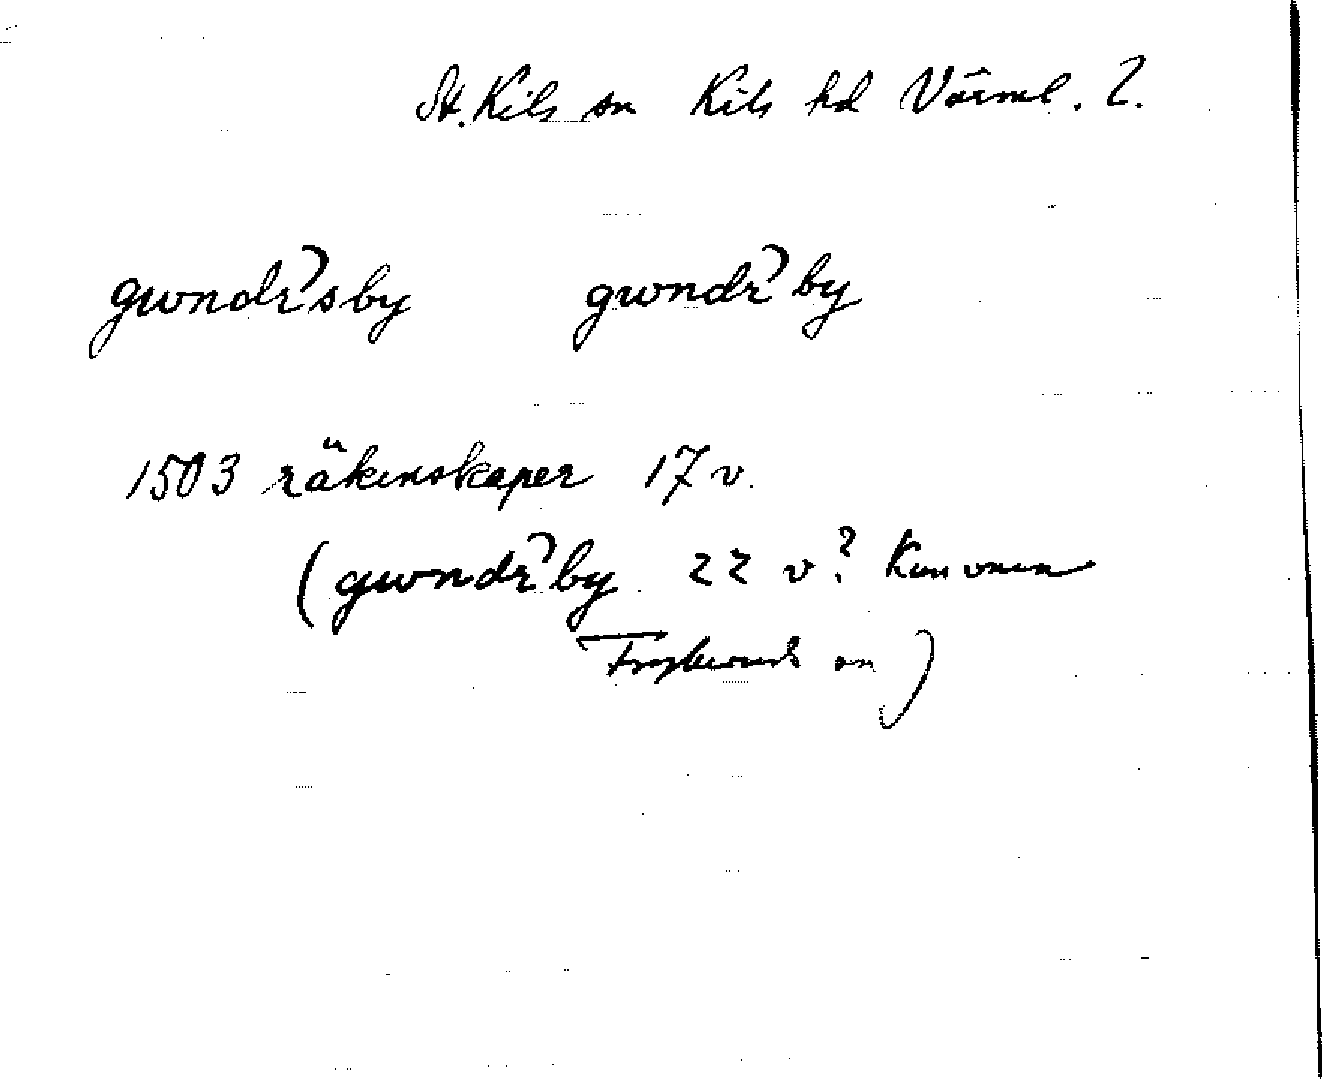 St. Kils sn Kils hd Värml. 2.
gwndr̉sby gwndr̉by
1503 räkenskaper 17 v.
(gwndr̉by 22 v? Kan vara
Fryksands sn)